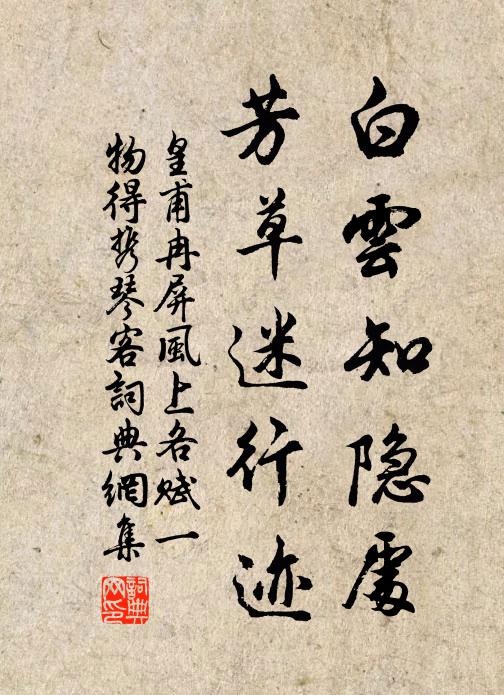 白雲知隐處
芳草迷行迹
皇甫冉屏風上各赋一
物得携琴客詞典網集
詞典
网印